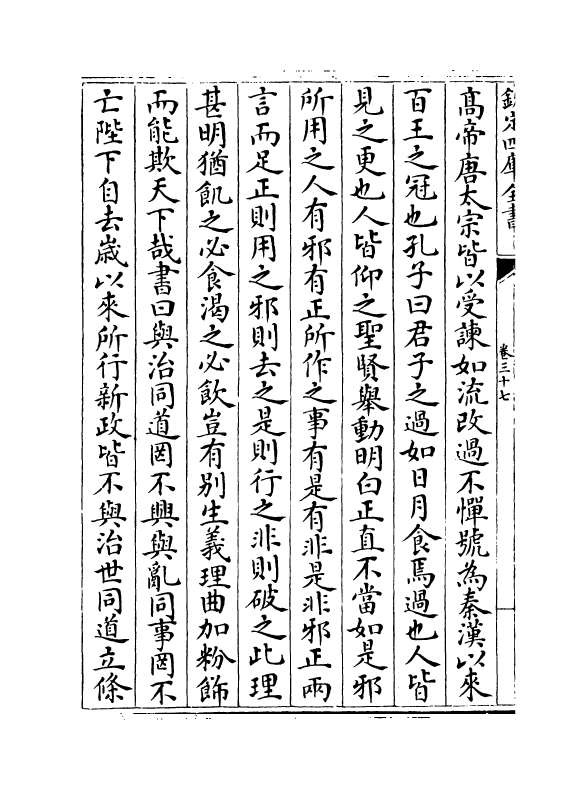 欽定四庫全書
卷三十七
高帝唐太宗皆以受諫如流改過不憚號為秦漢以來
百王之冠也孔子曰君子之過如日月食焉過也人皆
見之更也人皆仰之聖賢舉動明白正直不當如是邪
所用之人有邪有正所作之事有是有非是非邪正兩
言而足正則用之邪則去之是則行之非則破之此理
甚明猶飢之必食渴之必飲豈有别生義理曲加粉飾
而能欺天下哉書曰與治同道罔不興與亂同事罔不
亡陛下自去歲以來所行新政皆不與治世同道立條